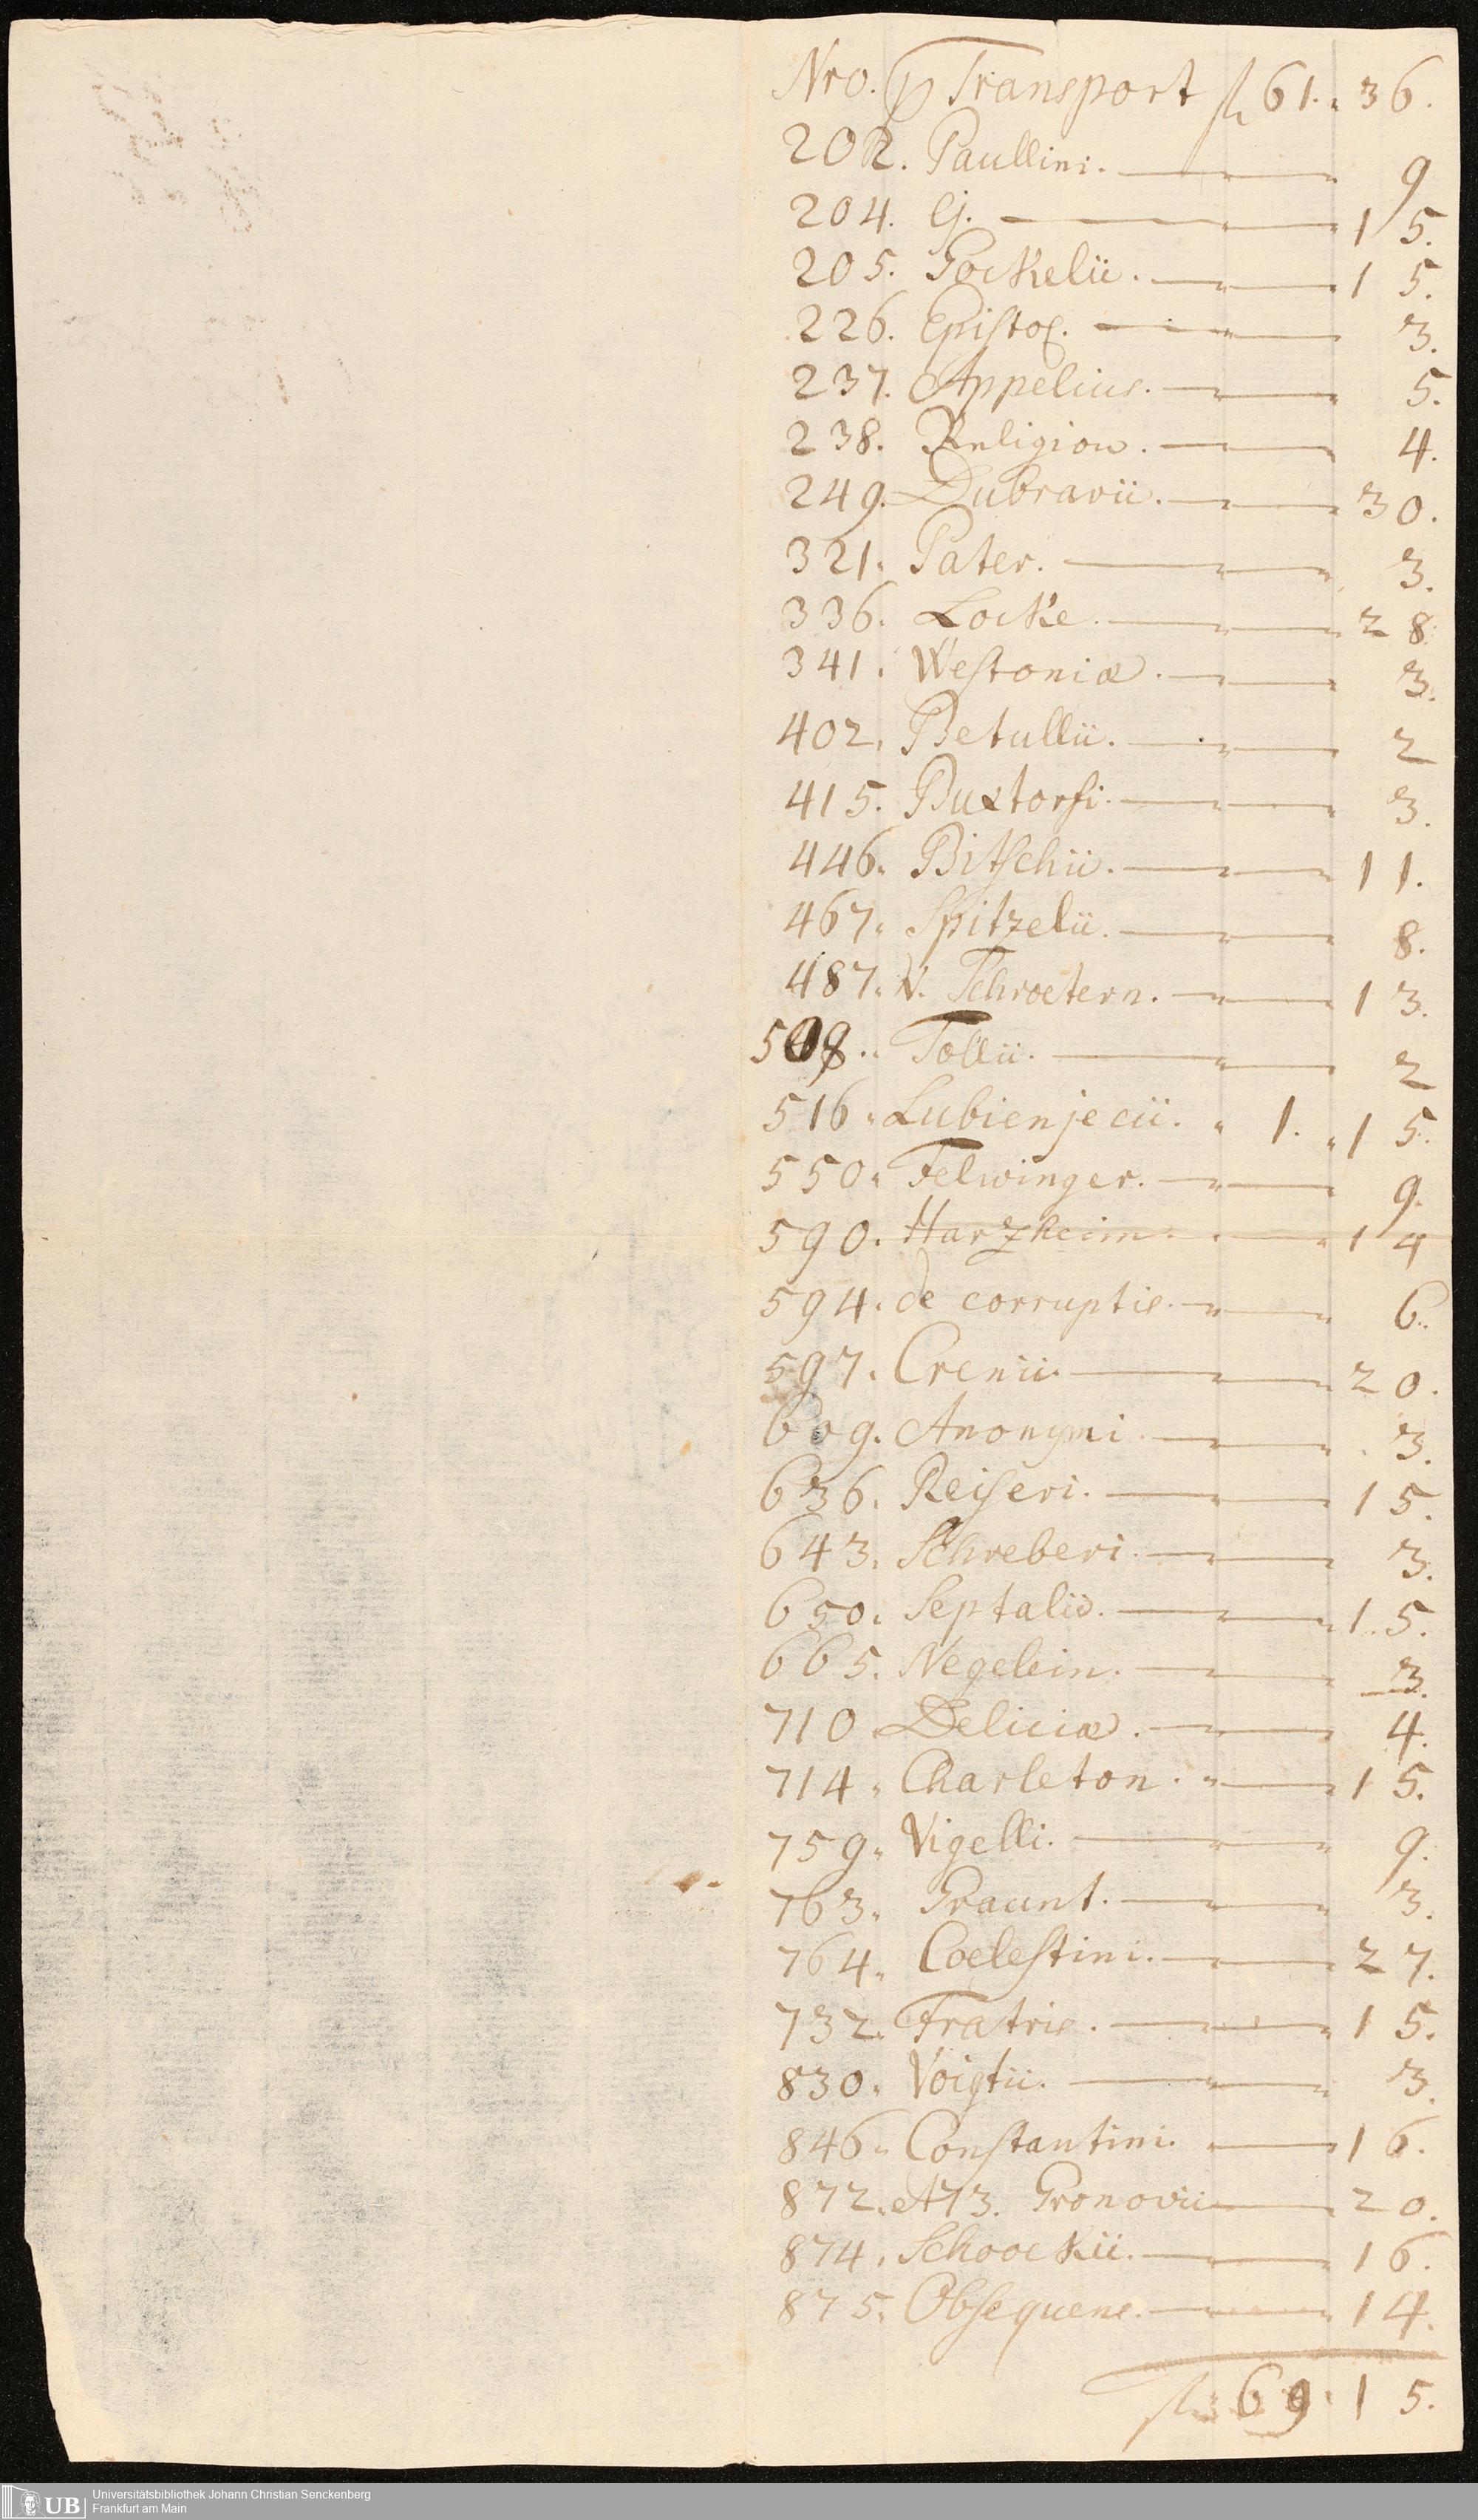 Nro. p Transport fl 61. 36.
202. Paullini. — 9
204. Ej. — 15.
205. Gockelii. — 15.
226. Epistol. — 3.
237. Appelius. — 5.
238. Religion. — 4.
249. Dubravii. — 30.
321. Pater. — 3.
336. Locke. — 28
341. Westoniæ. — 3.
402. Betullii. — 2
415. Buxtorfi. — 3.
446. Bitschii. — 11.
467. Spitzelii. — 8.
487. V. Schroetern. — 13.
509. Tollii. — 2
516. Lubienjecii. 1. 15.
550. Felwinger. — 9.
590. Harzheim. — 14
594. de corruptis. — 6.
597. Crenii. — 20.
609. Anonymi. — 3.
636. Reiseri. — 15.
643. Schreberi. — 3.
650. Septalii. — 15.
665. Negelein. — 3.
710. Deliciæ. — 4.
714. Charleton. — 15.
759. Vigelli. — 9.
763. Graunt. — 3.
764. Coelestini. — 27.
732. Fratris. — 15.
830. Voigtii. — 3.
846. Constantini. — 16.
872. et 73. Gronovii — 20.
874. Schoockii. — 16.
875. Obsequens. — 14.
fl. 69. 15.
UB Universitätsbibliothek Johann Christian Senckenberg
Frankfurt am Main